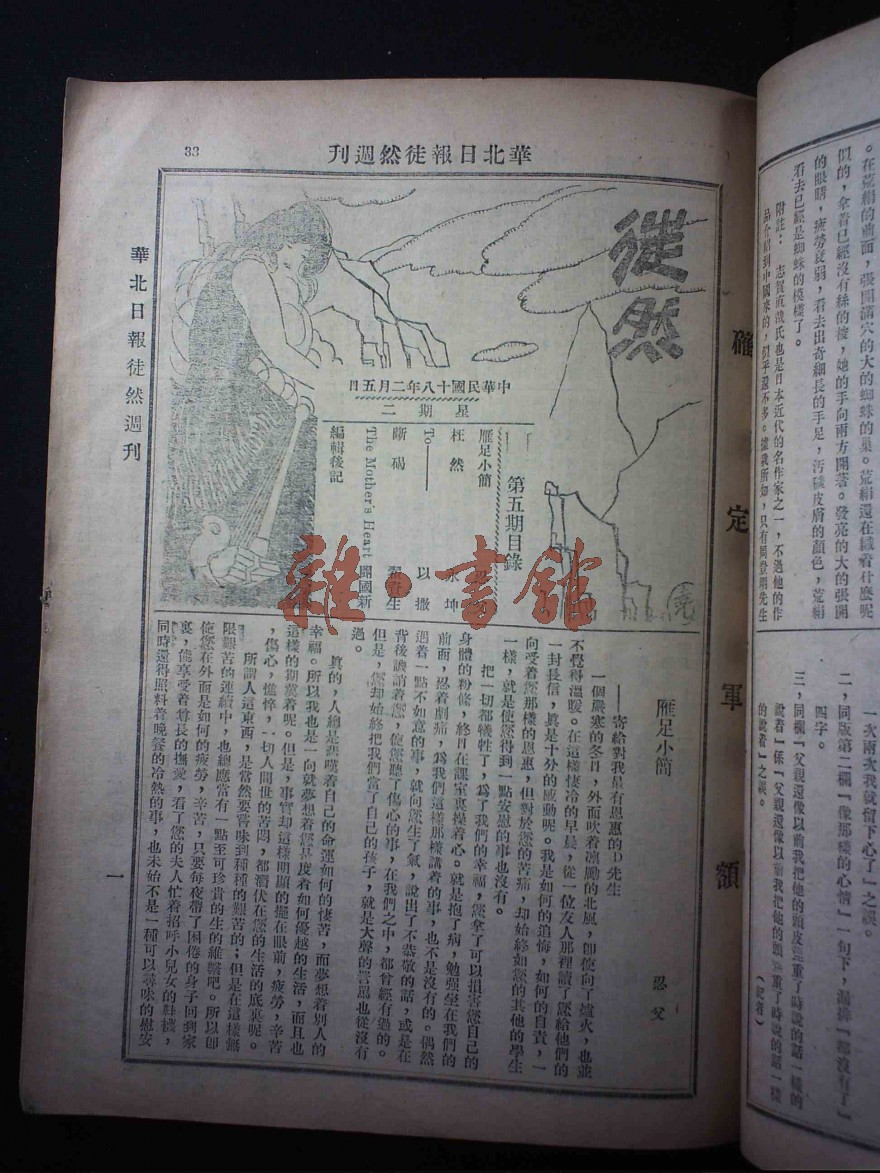 33
華北日報徒然週刊
徒然
中華民國十八年二月五日
星期二
第五期目錄
雁足小簡
枉然
永坤
To———
以撒
斷碣
The Mother's Heart
聞國新
編輯後記
雜·書館
華北日報徒然週刊
一
雁足小簡
恩父
——寄給對我最有恩惠的D先生
一個嚴寒的冬日，外面吹着凛勵的北風，卽使向了爐火，也並
不覺得溫暖。在這樣悽冷的早晨，從一位友人那裡讀了您給他們的
一封長信，眞是十分的感動呢。我是如何的追悔，如何的自責，一
向受着您那樣的恩惠，但對於您的苦痛，却始終如您的其他的學生
一樣，就是使您得到一點安慰的事也沒有。
把一切都犧牲了，爲了我們的幸福，您拿了可以損害您自己的
身體的粉條，終日在課室裏操着心。就是抱了病，勉强坐在我們的
前面，忍着劇痛，爲我們這樣那樣講着的事，也不是沒有的。偶然
遇着一點不如意的事，就向您生了氣，說出了不恭敬的話，或是在
背後譏誚着您，使您聽了傷心的事，在我們之中，都曾經有過的。
但是，您却始終把我們當了自己的孩子，就是大聲的詈罵也從沒有
過。
眞的，人總是悲嘆着自己的命運如何的悽苦，而夢想着別人的
幸福。所以我也是一向就夢想着您是度着如何優越的生活，而且也
這樣的期冀着呢。但是，事實却這樣明顯的擺在眼前，疲勞，辛苦
，傷心，憔悴，一切人間世的苦悶，都潛伏在您的生活的底裏呢。
所謂人這東西，是當然要嘗味到種種的艱苦的；但是在這樣無
限艱苦的連續中，也總應當有一點至可珍貴的生的維繫吧。所以卽
使您在外面是如何的疲勞，辛苦，只要每夜帶了困倦的身子回到家
裏，能享受着爺長的撫愛，看了您的夫人忙着招呼小兒女的鞋襪，
同時還得照料着晚餐的冷熱的事，也未始不是一種可以尋味的慰安
。在荒絹的前面，張開滿穴的大的蜘蛛的巢。荒絹還在織着什麼呢
似的，拿着已經沒有絲的梭，她的手向兩方開著。發亮的大的張開
的眼睛，疲勞衰弱，看去出奇細長的手足，汚穢皮膚的顏色，荒絹
看去已經是蜘蛛的模樣了。
附註：　志賀直哉氏也是日本近代的名作家之一，不過他的作
品介紹到中國來的，似乎還不多。據我所知，只有周豈明先生
確定軍額
一次兩次我就留下心了」之誤。
二，同版第二欄『像那樣的心情』一句下，漏排「都沒有了」
四字。
三，同欄『父親還像以前我把他的頭皮重了時說的話一樣的
說着』係『父親還像以前我把他的頭重了時說的話一樣
的說着』之誤。
（記者）